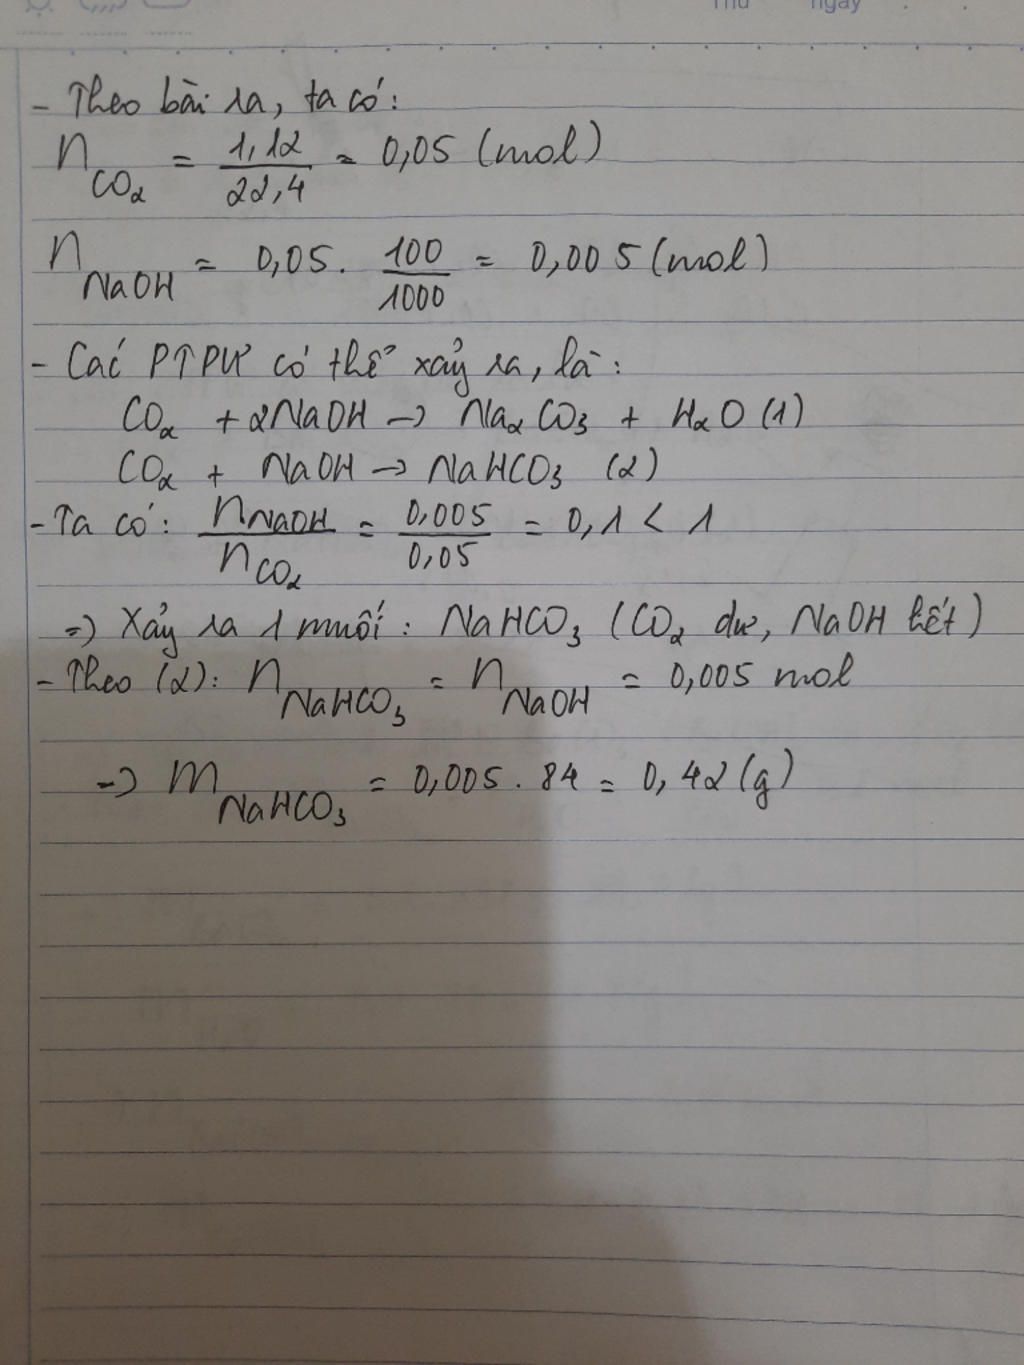 Thứ ngày
- Theo bài ra, ta có:
n_CO₂ = 1,12/22,4 = 0,05 (mol)
n_NaOH = 0,05 . 100/1000 = 0,005 (mol)
- Các PTPƯ có thể xảy ra, là:
CO₂ + 2NaOH → Na₂CO₃ + H₂O (1)
CO₂ + NaOH → NaHCO₃ (2)
- Ta có: n_NaOH/n_CO₂ = 0,005/0,05 = 0,1 < 1
⇒ Xảy ra 1 muối: NaHCO₃ (CO₂ dư, NaOH hết)
- Theo (2): n_NaHCO₃ = n_NaOH = 0,005 mol
→ m_NaHCO₃ = 0,005 . 84 = 0,42 (g)